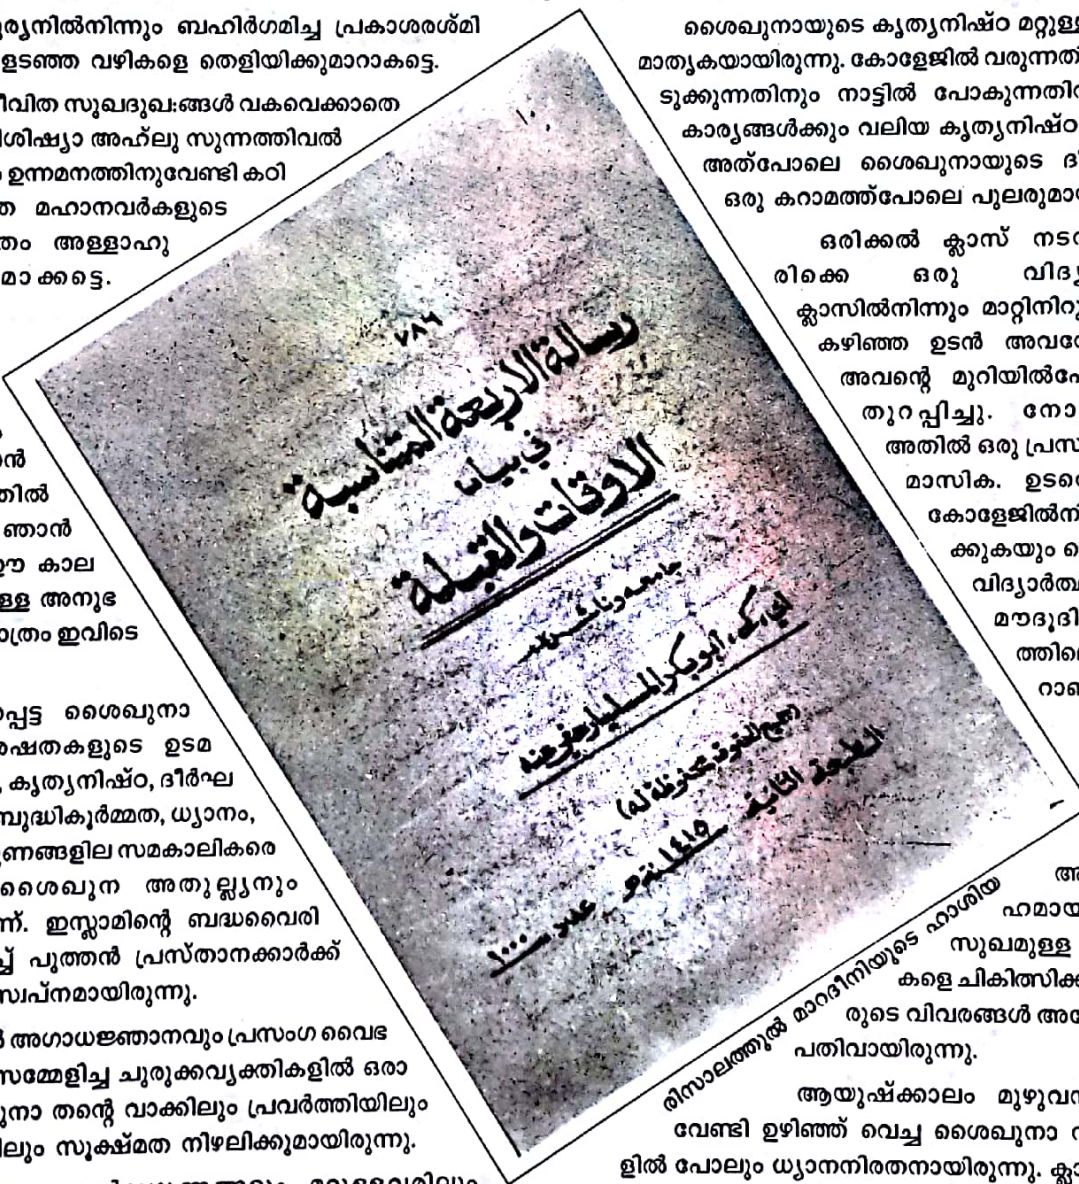 ര്യനിൽനിന്നും ബഹിർഗമിച്ച പ്രകാശരശ്മി
ളടഞ്ഞ വഴികളെ തെളിയിക്കുമാറാകട്ടെ.
ീവിത സുഖദുഖ:ങ്ങൾ വകവെക്കാതെ
ിശിഷ്യാ അഹ്ലു സുന്നത്തിവൽ
ഉന്നമനത്തിനുവേണ്ടി കഠി
ത മഹാനവർകളുടെ
തം അള്ളാഹു
മാ ക്കട്ടെ.
ൻ
തിൽ
ഞാൻ
ഈ കാല
ള്ള അനുഭ
ാത്രം ഇവിടെ
പ്പെട്ട ശൈഖുനാ
ഷേതകളുടെ ഉടമ
, കൃത്യനിഷ്ഠ, ദീർഘ
ബുദ്ധികൂർമ്മത, ധ്യാനം,
ുണങ്ങളില സമകാലികരെ
ശൈഖുന അതുല്ല്യനും
ന്. ഇസ്ലാമിന്റെ ബദ്ധവൈരി
ച്ച് പുത്തൻ പ്രസ്താനക്കാർക്ക്
സ്വപ്നമായിരുന്നു.
അഗാധജ്ഞാനവും പ്രസംഗ വൈഭ
സമ്മേളിച്ച ചുരുക്കവ്യക്തികളിൽ ഒരാ
ുനാ തന്റെ വാക്കിലും പ്രവർത്തിയിലും
ിലും സൂക്ഷ്മത നിഴലിക്കുമായിരുന്നു.
٧٨٦
رسالة الاربعة المتناسبة
في بيان
الاوقات والقبلة
جامعه وناشره
ابوبكر المسليار عفي عنه
(جميع الحقوق محفوظة له)
الطبعة الثانية
١٤١٥ سنه
عدد ١٠٠٠
രിസാലത്തുൽ മാറദീനിയുടെ ഹാശിയ
ശൈഖുനായുടെ കൃത്യനിഷ്ഠ മറ്റുള്ള
മാതൃകയായിരുന്നു. കോളേജിൽ വരുന്നത
ടുക്കുന്നതിനും നാട്ടിൽ പോകുന്നതി
കാര്യങ്ങൾക്കും വലിയ കൃത്യനിഷ്ഠ
അത്പോലെ ശൈഖുനായുടെ ദ
ഒരു കറാമത്ത്പോലെ പുലരുമാ
ഒരിക്കൽ ക്ലാസ് നട
രിക്കെ ഒരു വിദ്യ
ക്ലാസിൽനിന്നും മാറ്റിനിറു
കഴിഞ്ഞ ഉടൻ അവ
അവന്റെ മുറിയിൽപേ
തുറപ്പിച്ചു. നോ
അതിൽ ഒരു പ്രസ
മാസിക. ഉടനെ
കോളേജിൽനി
ക്കുകയും ചെ
വിദ്യാർത്ഥ
മൗദൂദി
ത്തിലെ
റാണ
അ
ഹമായ
സുഖമുള്ള
കളെ ചികിത്സിക്ക
രുടെ വിവരങ്ങൾ അന്വേ
പതിവായിരുന്നു.
ആയുഷ്ക്കാലം മുഴുവൻ
വേണ്ടി ഉഴിഞ്ഞ് വെച്ച ശൈഖുനാ
ളിൽ പോലും ധ്യാനനിരതനായിരുന്നു. ക്ലാ